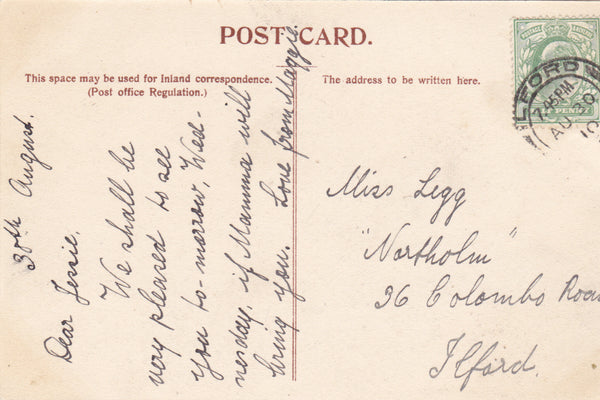 POST CARD.
This space may be used for Inland correspondence.
(Post office Regulation.)
The address to be written here.
30th August.
Dear Jessie,
We shall be
very pleased to see
you to-morrow, Wed-
nesday, if Mamma will
bring you. Love from Maggie.
Miss Legg
"Northolm"
36 Colombo Road
Ilford.
ILFORD
7.45PM
AU 30
10